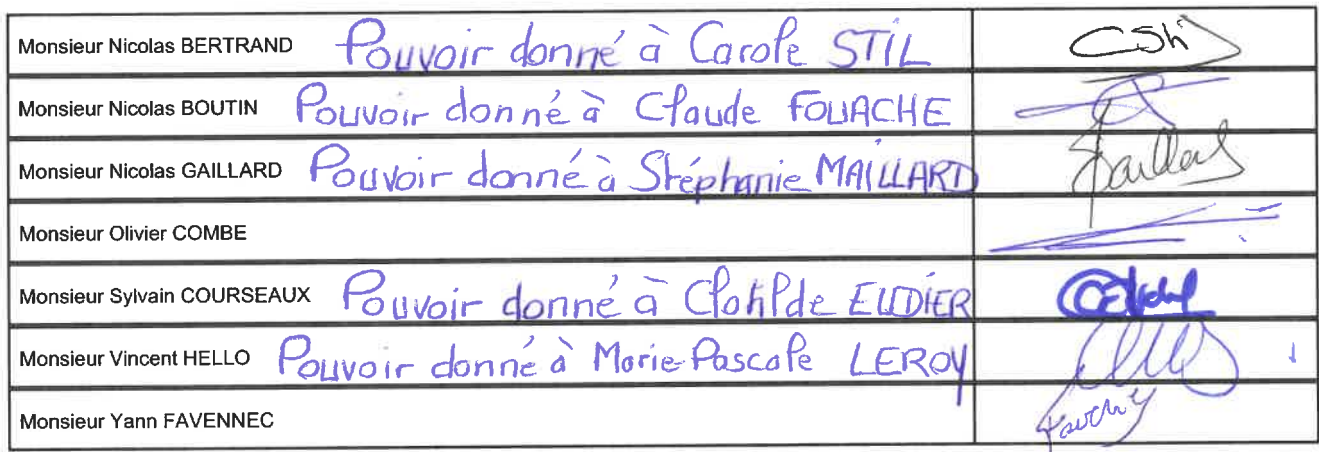 Monsieur Nicolas BERTRAND Pouvoir donné à Carole STIL
Monsieur Nicolas BOUTIN Pouvoir donné à Claude FOUACHE
Monsieur Nicolas GAILLARD Pouvoir donné à Stéphanie MAILLARD
Monsieur Olivier COMBE
Monsieur Sylvain COURSEAUX Pouvoir donné à Clotilde EUDIER
Monsieur Vincent HELLO Pouvoir donné à Marie-Pascale LEROY
Monsieur Yann FAVENNEC